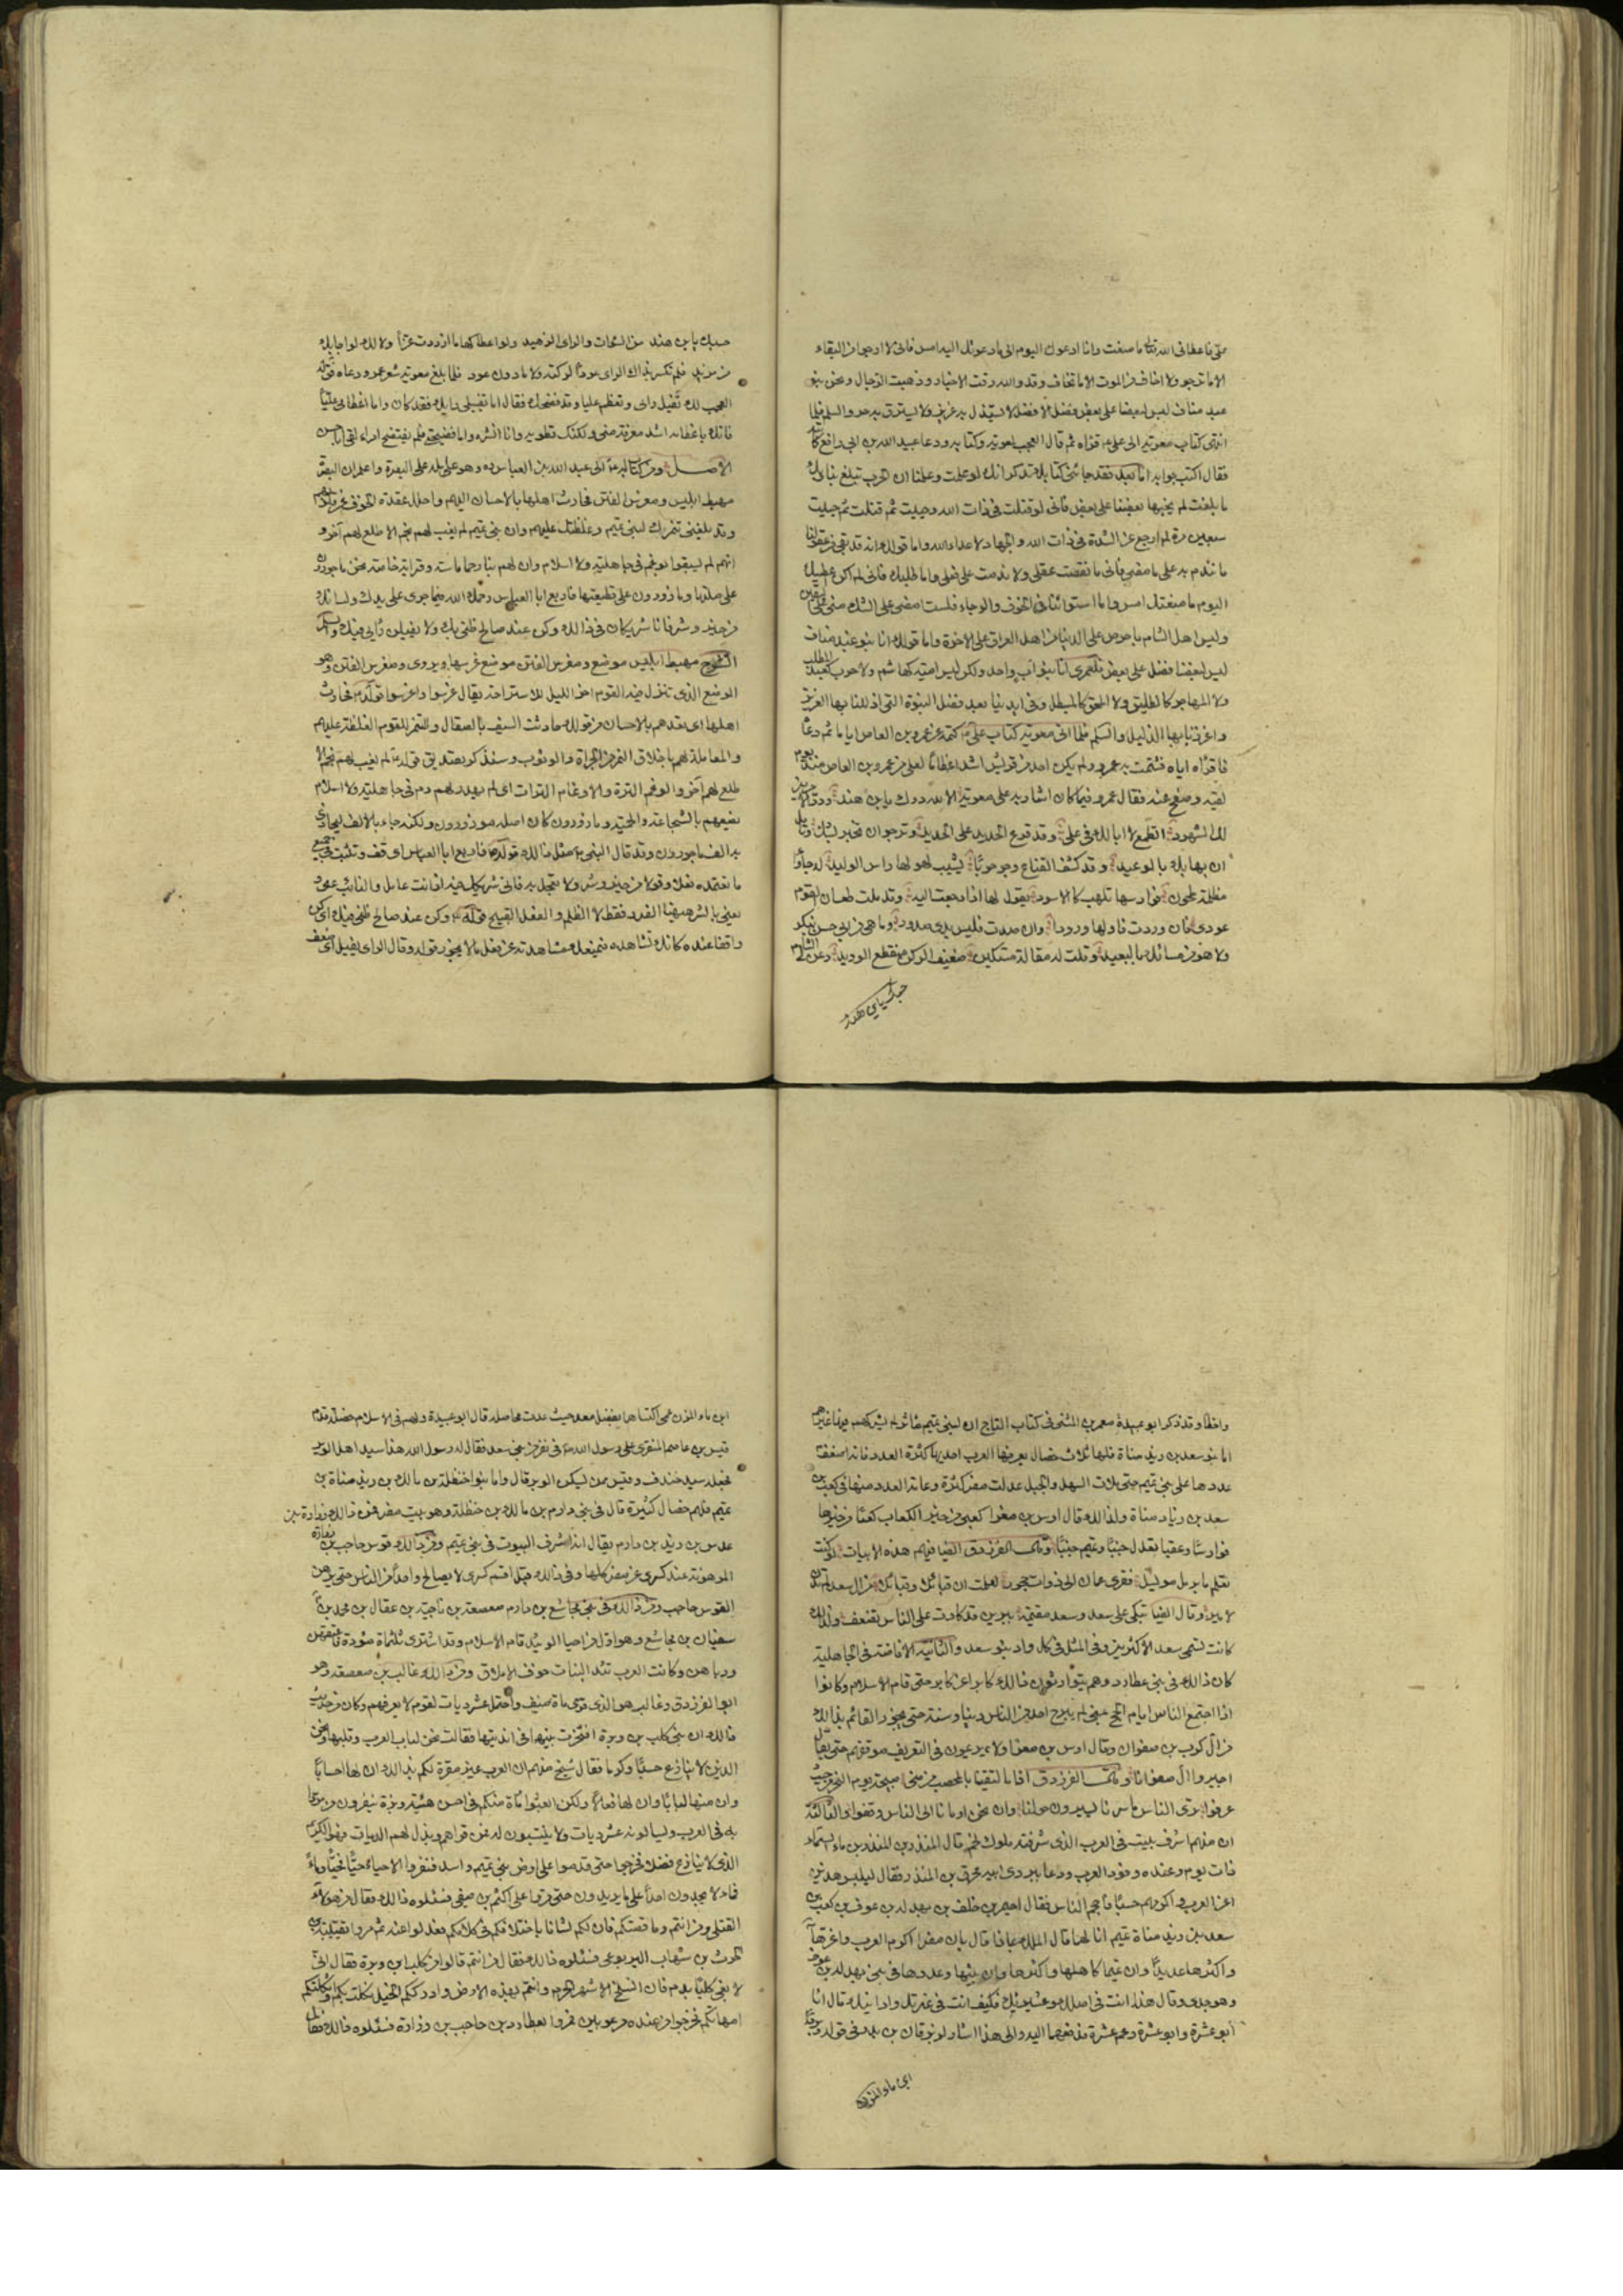 منى فاعطانى الله تعالى ما صنعت وانا ادعوك اليوم الى ما دعوتك اليه امس فانى لا ارجو من البقاء
الا ما ترجو ولا اخاف من الموت الا ما تخاف وقد والله رقت الاجناد وذهبت الرجال ونحن بنو
عبد مناف ليس لبعضنا على بعض فضل الا فضل لا يستذل به عزيز ولا يسترق به حر والسلم فلما
انتهى كتاب معوية الى على ع قراه ثم قال العجب لمعوية وكتابه ودعا عبيد الله بن ابى رافع كاتبه
فقال اكتب جوابه اما بعد فقد جاءنى كتابك تذكر انك لو علمت وعلمنا ان الحرب تبلغ بنا وبك
ما بلغت لم يجنها بعضنا على بعض فانى لو قتلت فى ذات الله وحييت ثم قتلت ثم حييت
سبعين مرة لم ارجع عن الشدة فى ذات الله والجهاد لاعداء الله واما قولك انه قد بقى من عقولنا
ما نندم به على ما مضى فانى ما نقصت عقلى ولا ندمت على فعلى واما طلبك فانى لم اكن اعطيك
اليوم ما منعتك امس واما استوائنا فى الخوف والرجاء فلست امضى على الشك منى على اليقين
وليس اهل الشام باحرص على الدنيا من اهل العراق على الاخرة واما قولك انا بنو عبد مناف
ليس لبعضنا فضل على بعض فلعمرى انا بنو اب واحد ولكن ليس امية كهاشم ولا حرب كعبد المطلب
ولا المهاجر كالطليق ولا المحق كالمبطل وفى ايدينا بعد فضل النبوة التى اذللنا بها العزيز
واعززنا بها الذليل والسلم فلما اتى معوية كتاب على ع كتمه عن عمرو بن العاص اياما ثم دعاه
فاقراه اياه فشمت به عمرو ولم يكن احد من قريش اشد اعظاما لعلى من عمرو بن العاص منذ يوم
لقيه وصفح عنه فقال عمرو فيما كان اشار به على معوية الا لله درك يا بن هند ودر الامرين
لك الشهود اتطمع لا ابا لك فى على وقد قرع الحديد على الحديد وترجو ان تخبره بشك وتامل
ان يهابك بالوعيد وقد كشف القناع وجر حربا يشيب لهولها راس الوليد له جاوا
مظلمة طحون فوارسها تلهب كالاسود يقول لها اذا رجعت اليه وقد ملت طعان القوم
عودى فان وردت فاولها ورودا وان صدت فليس بذى صدود وما هى من ابى حسن بنكر
ولا هو من مسائك بالبعيد وقلت له مقالة مستكين ضعيف الركن منقطع الوريد دعن لى الشام
حسبك يا بن هند
حسبك يا بن هند من السوات والراى الزهيد ولو اعطاكها ما ازددت عزا ولا لك لو اجابك
من مزيد فلم تكسر بذاك الراى عودا لركته ولا ما دون عود فلما بلغ معوية شعر عمرو دعاه فقال له
العجب لك تفيل راى وتعظم عليا وقد فضحك فقال اما تفييلى رايك فقد كان واما اعظامى عليا
فانك باعظامه اشد معرفة منى ولكنك تطويه وانا انشره واما فضيحتى فلم يفتضح امرء لقى ابا حسن
الاصل ومن كتاب له ع الى عبد الله بن العباس ره وهو عامله على البصرة واعلم ان البصرة
مهبط ابليس ومغرس الفتن فحادث اهلها بالاحسان اليهم واحلل عقدة الخوف عن قلوبهم
وقد بلغنى تنمرك لبنى تميم وغلظتك عليهم وان بنى تميم لم يغب لهم نجم الا طلع لهم آخر و
انهم لم يسبقوا بوغم فى جاهلية ولا اسلام وان لهم بنا رحما ماسة وقرابة خاصة نحن ماجورون
على صلتها ومازورون على قطيعتها فاربع ابا العباس رحمك الله فيما جرى على يدك ولسانك
من خير وشر فانا شريكان فى ذلك وكن عند صالح ظنى بك ولا يفيلن رايى فيك والسلم
الشرح مهبط ابليس موضع ومغرس الفتن موضع غرسها ويروى ومعرس الفتن وهو
الموضع الذى تنزل فيه القوم اخر الليل للاستراحة يقال عرسوا واعرسوا قوله ع فحادث
اهلها اى تعهدهم بالاحسان من قولك حادثت السيف بالصقال والتنمر للقوم الغلظة عليهم
والمعاملة لهم باخلاق النمر من الجراة والوثوب وسنذكر تصديق قوله ع لم يغب لهم نجم الا
طلع لهم آخر والوغم الترة والاوغام الترات اى لم يهدر لهم دم فى جاهلية ولا اسلام
يصفهم بالشجاعة والحمية ومازورون كان اصله موزورون ولكنه جاء بالالف ليحاذى
به الف ماجورون وقد قال النبى ص مثل ذلك قوله ع فاربع ابا العباس اى قف وتثبت فى جميع
ما تعتمده فعلا وقولا من خير وشر ولا تعجل به فانى شريكك فيه اذ انت عاملى والنائب عنى و
يعنى بالشر ههنا الضرر فقط لا الظلم والفعل القبيح قوله ع وكن عند صالح ظنى فيك اى كن
واقفا عنده كانك تشاهده فتمنعك مشاهدته عن فعل ما لا يجوز قوله وقال الراى يفيل اى ضعف
واخطا وقد ذكر ابو عبيدة معمر بن المثنى فى كتاب التاج ان لبنى تميم ماثر لم يشركهم فيها غيرهم
اما بنو سعد بن زيد مناة فلها ثلث خصال يعرفها العرب احديها كثرة العدد فانه اضعف
عددها على بنى تميم حتى ملات السهل والجبل عدلت مضر كثرة وعامة العدد منها فى كعب بن
سعد بن زيد مناة ولذلك قال اوس بن مغرا كعبى من خير الكعاب كعبا من خيرها
فوارسا وعقبا تعدل جنبا وتميم جنبا وقال الفرزدق ايضا فيهم هذه الابيات لو كنت
تعلم ما برمل مويسل فقرى عمان الى ذوات حجور لعلمت ان قبائلا وقبائلا من ال سعد لم تدن
لامير وقال ايضا تبكى على سعد وسعد مقيمة بيبرين قد كادت على الناس تضعف ولذلك
كانت تسمى سعد الاكثرين وفى المثل فى كل واد بنو سعد والثانية الافاضة فى الجاهلية
كان ذلك فى بنى عطارد وهم يتوارثون ذلك كابرا عن كابر حتى قام الاسلام وكانوا
اذا اجتمع الناس ايام الحج بمنى لم يبرح احد من الناس دينا وسنة حتى يجوز القائم بذلك
من ال كرب بن صفوان وقال اوس بن مغرا ولا يريمون فى التعريف موقفهم حتى يقال
اجيزوا ال صفوانا وقال الفرزدق اذا ما التقينا بالمحصب من منى صبيحة يوم النحر من حيث
عرفوا ترى الناس ما سرنا يسيرون حولنا وان نحن اومانا الى الناس وقفوا والثالثة
ان منهم اشرف بيت فى العرب الذى شرفته ملوك لخم قال المنذر بن المنذر بن ماء السماء
ذات يوم وعنده وفود العرب ودعا ببردى ابيه محرق بن المنذر فقال ليلبس هذين
اعز العرب واكرمهم حسبا فاحجم الناس فقال احيمر بن خلف بن بهدلة بن عوف بن كعب بن
سعد بن زيد مناة تميم انا لهما قال الملك بماذا قال بان مضر اكرم العرب واعزها
واكثرها عديدا وان تميما كاهلها واكثرها وان بيتها وعددها فى بنى بهدلة بن عوف
وهو جدى وقال هذا انت فى اصلك وعشيرتك فكيف انت فى عترتك وادانيك قال انا
ابو عشرة واخو عشرة وعم عشرة فدفعهما اليه والى هذا اشار الزبرقان بن بدر فى قوله وبردا
ابن ماء المزن
ابن ماء المزن عمى اكتساهما بفضل معد حيث عدت محاصله قال ابو عبيدة ولهم فى الاسلام خصلة قدم
قيس بن عاصم المنقرى على رسول الله ص فى نفر من بنى سعد فقال له رسول الله هذا سيد اهل الوبر
فجعله سيد خندف وقيس ممن يسكن الوبر قال واما بنو حنظلة بن مالك بن زيد مناة بن
تميم فلهم خصال كثيرة قال فى بنى دارم بن مالك بن حنظلة وهو بيت مضر فمن ذلك زرارة بن
عدس بن زيد بن دارم يقال انه اشرف البيوت فى بنى تميم ومن ذلك قوس حاجب بن زرارة
المرهونة عند كسرى عن مضر كلها وفى ذلك قيل اقسم كسرى لا يصالح واحدا من الناس حتى يرهن
القوس حاجب ومن ذلك فى بنى مجاشع بن دارم صعصعة بن ناجية بن عقال بن محمد بن
سفيان بن مجاشع وهو اول من احيا الوئيد قام الاسلام وقد اشترى ثلثمائة موؤدة فاعتقهن
ورباهن وكانت العرب تئد البنات خوف الاملاق ومن ذلك غالب بن صعصعة وهو
ابو الفرزدق وغالب هو الذى قرى مائة ضيف واحتمل عشر ديات لقوم لا يعرفهم وكان من حديث
ذلك ان بنى كلب بن وبرة افتخرت بينها فى انديتها فقالت نحن لباب العرب وقلبها ونحن
الذين لا ينازع حسبا وكرما فقال شيخ منهم ان العرب غير مقرة لكم بذلك ان لها احسابا
وان منها لبابا وان لها فعالا ولكن ابعثوا مائة منكم فى احسن هيئة وبزة ينفرون من مروا
به فى العرب ويسالونه عشر ديات ولا ينتسبون له فمن قراهم وبذل لهم الديات فهو الكريم
الذى لا ينازع فضلا فخرجوا حتى قدموا على ارض بنى تميم واسد فنفروا الاحياء حيا فحيا وماء
فماء لا يجدون احدا على ما يريدون حتى مروا على اكثم بن صيفى فسئلوه ذلك فقال من هولاء
القتلى ومن انتم وما قصتكم فان لكم لشانا باختلافكم فى كلامكم فعدلوا عنه ثم مروا بقتيبة بن
الحرث بن شهاب اليربوعى فسئلوه ذلك فقال من انتم قالوا من كلب بن وبرة فقال انى
لا بغى كلبا بدم فان انسلخ الاشهر الحرم وانتم بهذه الارض وادرككم الخيل نكلت بكم واثكلتكم
امهاتكم فخرجوا من عنده مرعوبين فمروا بعطارد بن حاجب بن زرارة فسئلوه ذلك فقال